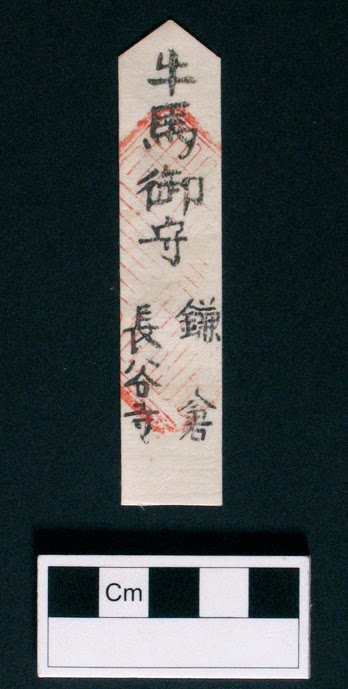 牛馬御守
鎌倉
長谷寺
Cm